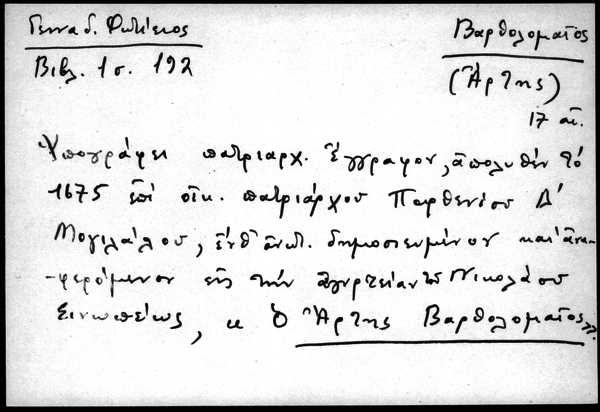 Γενναδ. Φωτίειος
Βιβλ. 1 σ. 192
Βαρθολομαῖος
(Ἄρτης)
17 αἰ.
Ὑπογράφει πατριαρχ. ἔγγραφον, ἀπολυθὲν τὸ
1675 ἐπὶ οἰκ. πατριάρχου Παρθενίου Δ'
Μογιλάλου, ἐνθ' ἀνωτ. δημοσιευμένον καὶ ἀνα-
-φερόμενον εἰς τὴν Νικολάου
Σινωπέως, κ ὁ Ἄρτης Βαρθολομαῖος